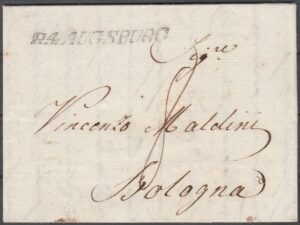 R.4.AUGSBURG
Sig.re
Vincenzo Maldini
Bologna